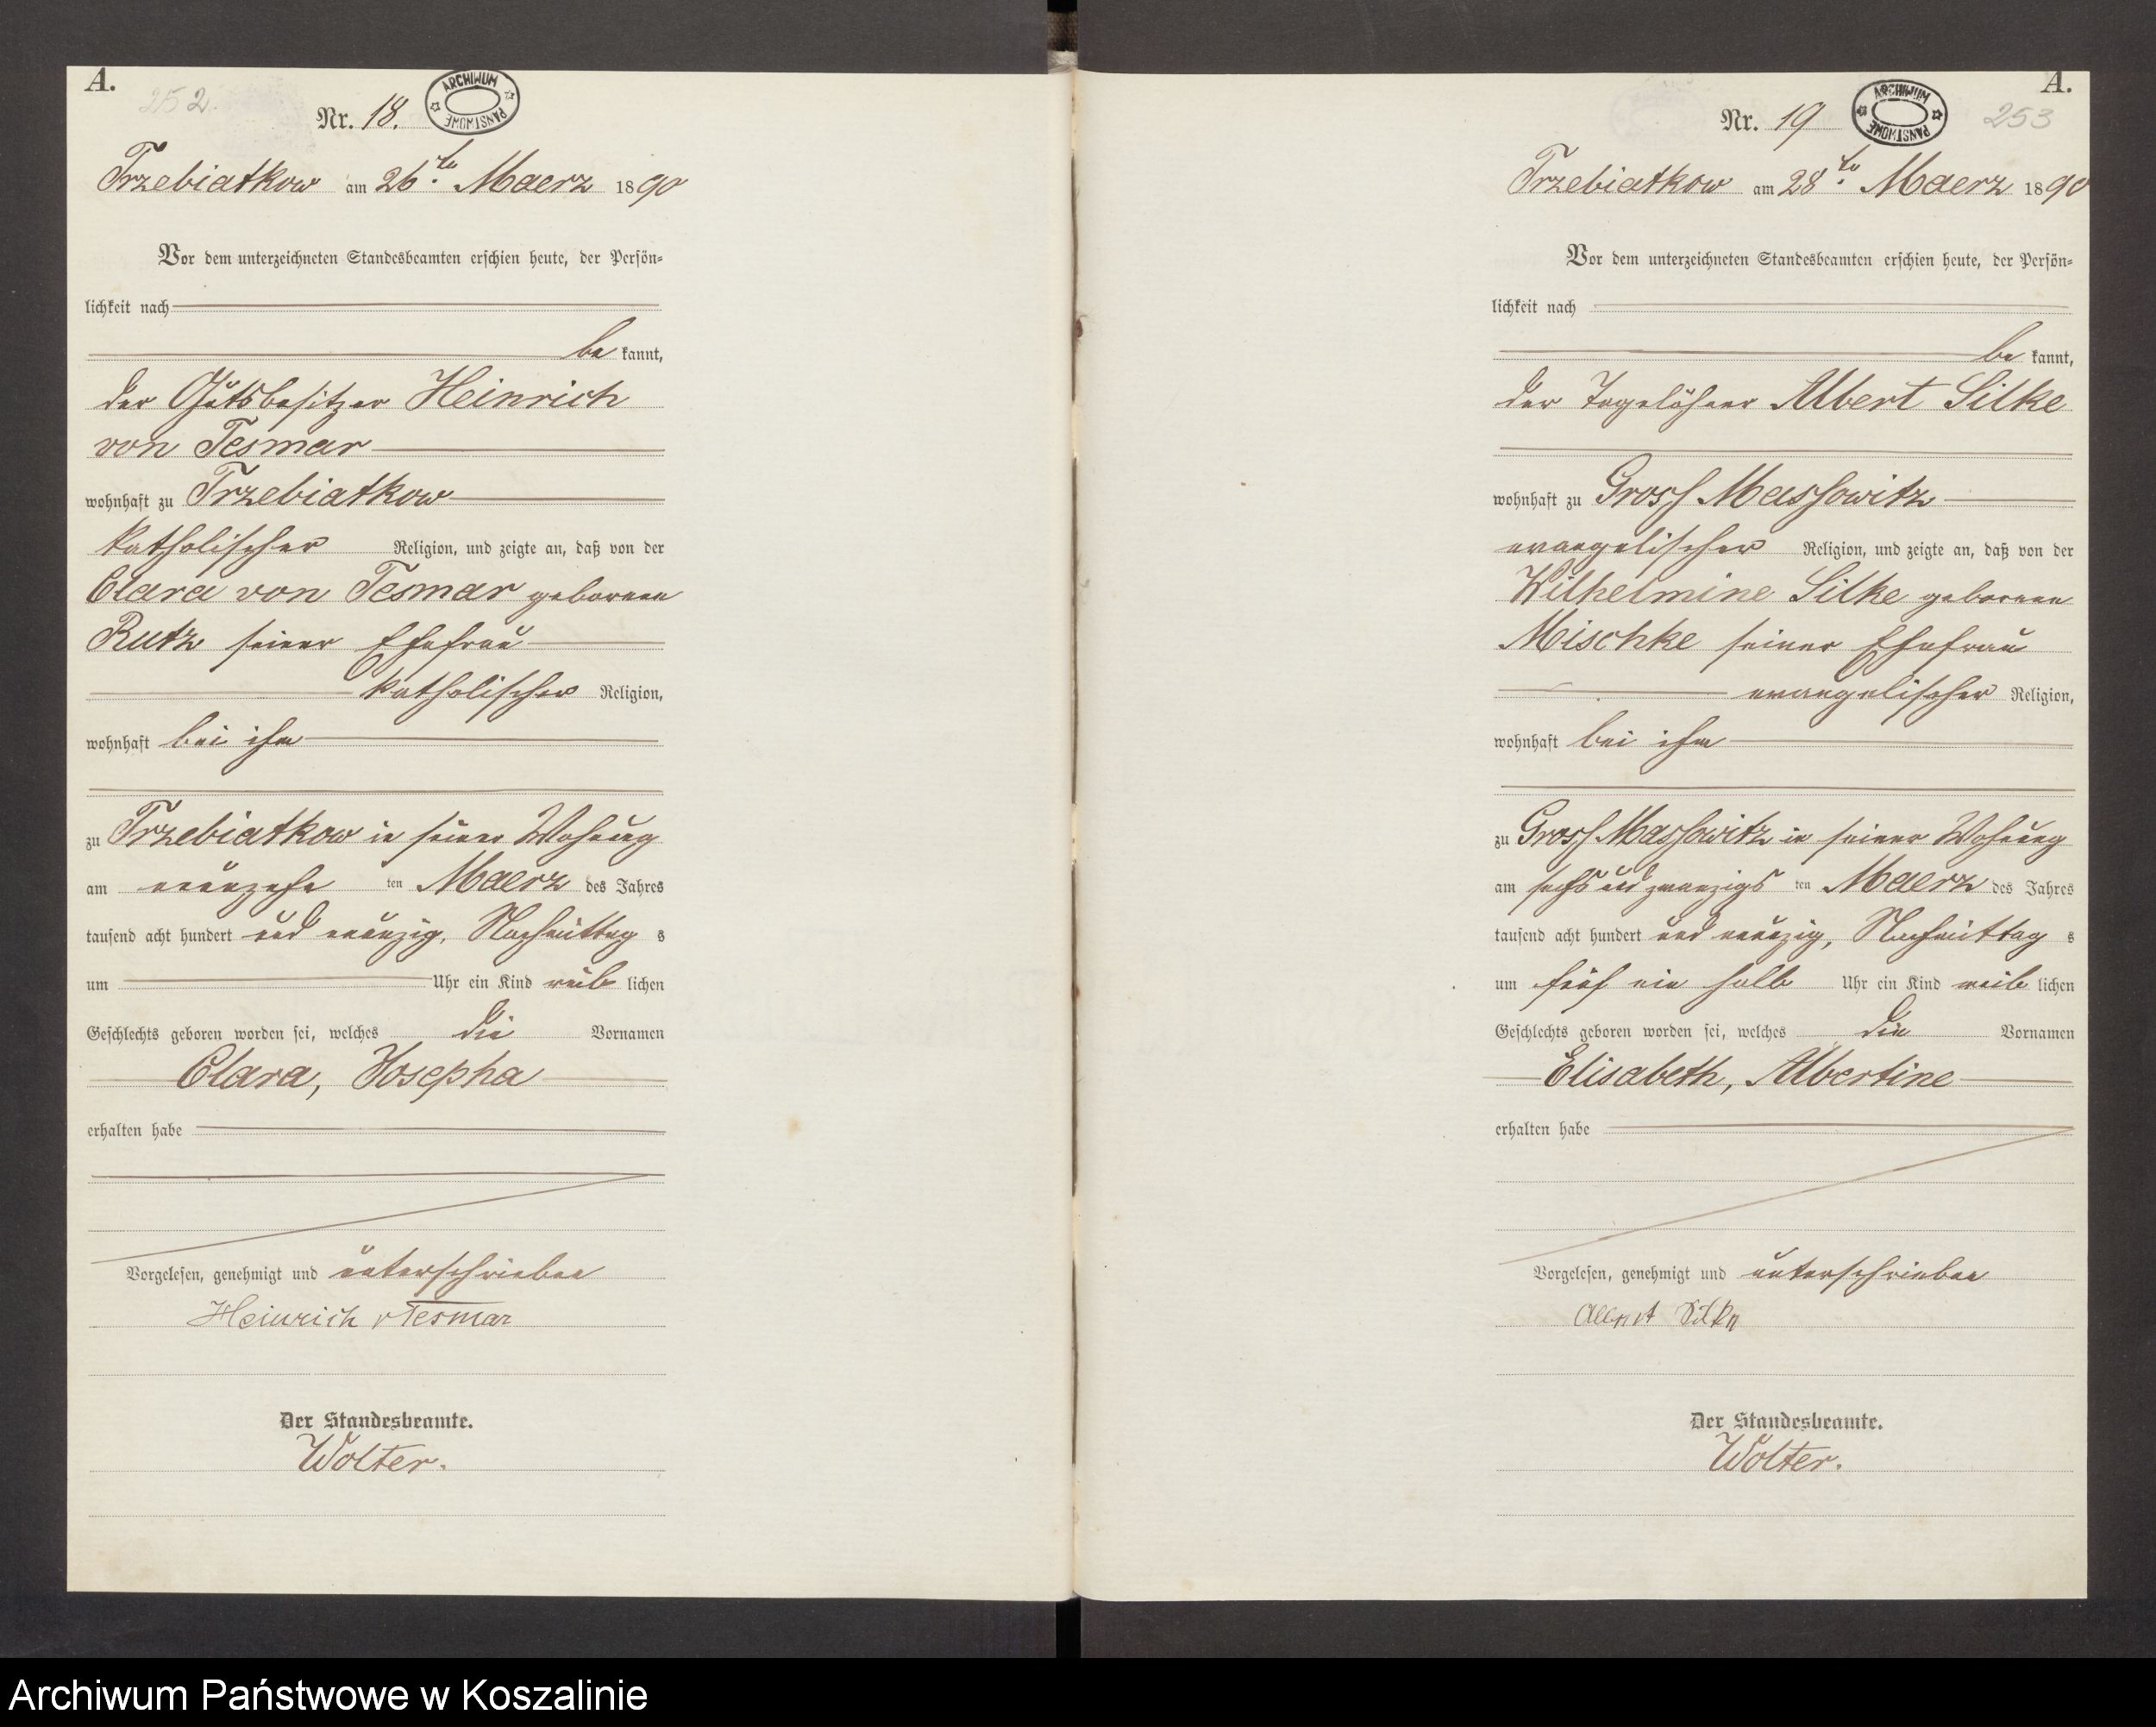 A.
252.
Nr. 18.
ARCHIWUM PAŃSTWOWE
Trzebiatkow am 26ten Maerz 1890
Vor dem unterzeichneten Standesbeamten erschien heute, der Persön-
lichkeit nach
be kannt,
der Gutsbesitzer Heinrich
von Tesmar
wohnhaft zu Trzebiatkow
katholischer Religion, und zeigte an, daß von der
Clara von Tesmar geborenen
Rutz seiner Ehefrau
katholischer Religion,
wohnhaft bei ihm
zu Trzebiatkow in seiner Wohnung
am neunzehn ten Maerz des Jahres
tausend acht hundert und neunzig, Nachmittag s
um Uhr ein Kind weib lichen
Geschlechts geboren worden sei, welches die Vornamen
Clara, Josepha
erhalten habe
Vorgelesen, genehmigt und unterschrieben
Heinrich v Tesmar
Der Standesbeamte.
Wolter.
A.
253
Nr. 19
ARCHIWUM PAŃSTWOWE
Trzebiatkow am 28ten Maerz 1890
Vor dem unterzeichneten Standesbeamten erschien heute, der Persön-
lichkeit nach
be kannt,
der Tagelöhner Albert Silke
wohnhaft zu Gross Massowitz
evangelischer Religion, und zeigte an, daß von der
Wilhelmine Silke geborenen
Mischke seiner Ehefrau
evangelischer Religion,
wohnhaft bei ihm
zu Gross Massowitz in seiner Wohnung
am sechs und zwanzigs ten Maerz des Jahres
tausend acht hundert und neunzig, Nachmittag s
um fünf ein halb Uhr ein Kind weib lichen
Geschlechts geboren worden sei, welches die Vornamen
Elisabeth, Albertine
erhalten habe
Vorgelesen, genehmigt und unterschrieben
Albert Silke
Der Standesbeamte.
Wolter.
Archiwum Państwowe w Koszalinie